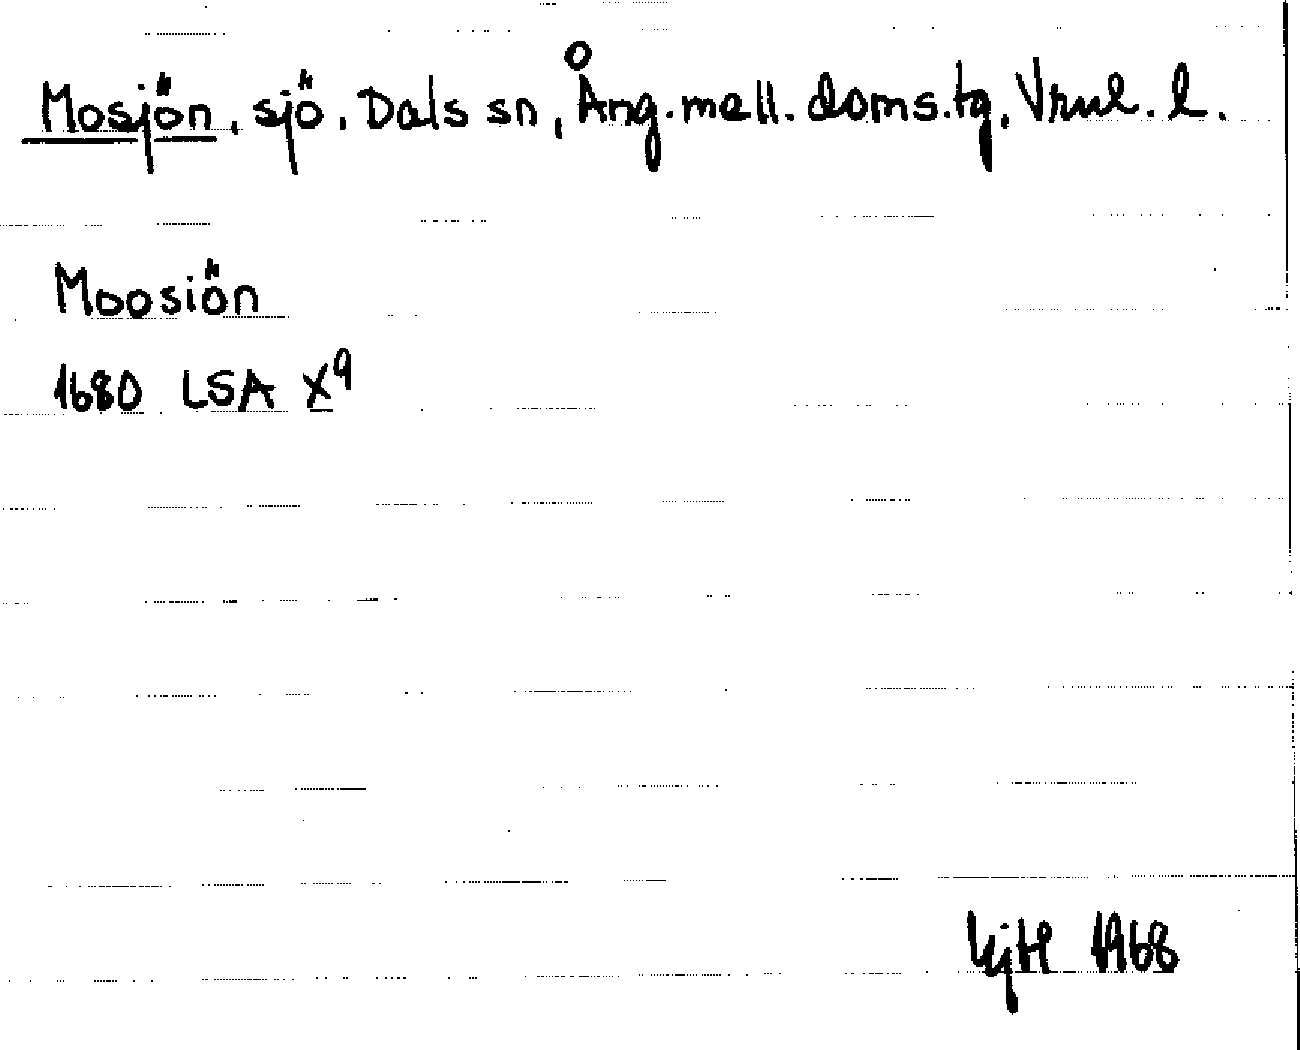 Mosjön, sjö, Dals sn, Ång.mell. doms.tg, Vrnl. l.
Moosiön
1680 LSA X9
1968